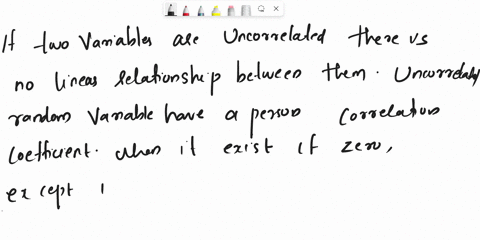 If two Variables are Uncorrelated there is
no linear relationship between them. Uncorrelated
random Variable have a person Correlation
Coefficient. when it exist if zero,
except